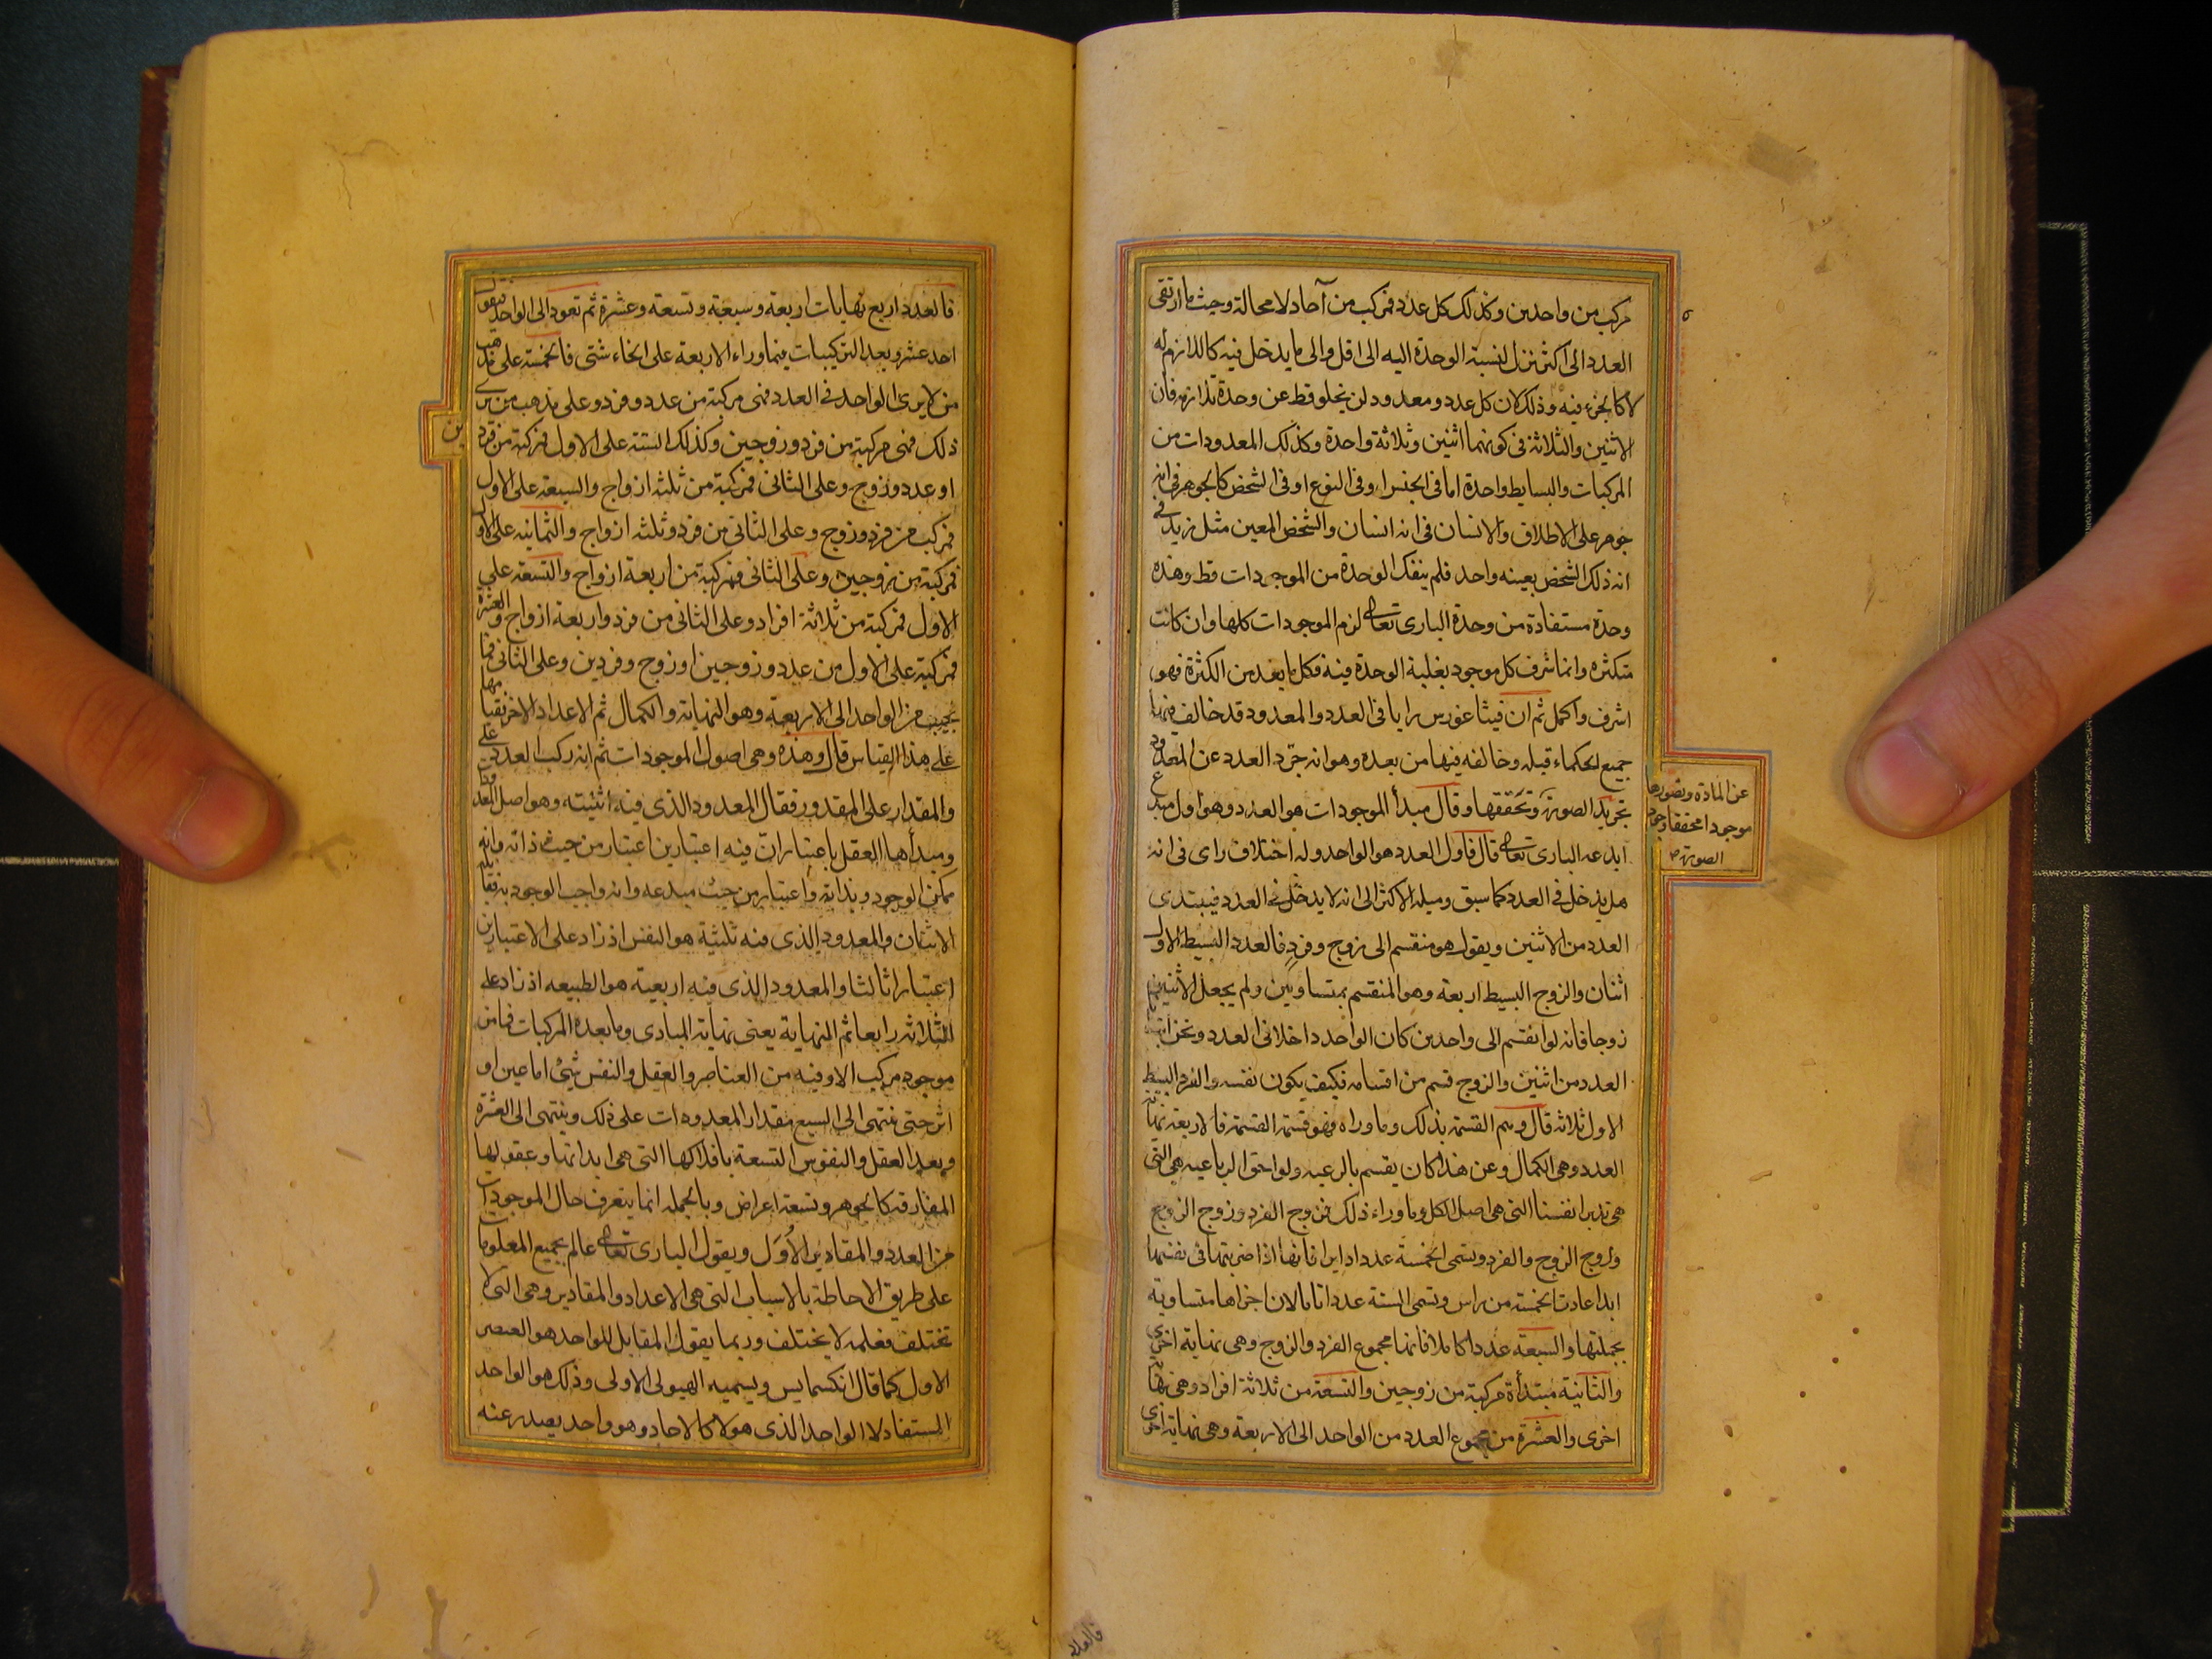 مركب من واحدين وكذلك كل عدد فمركب من آحاد لا محالة وحيث ما ارتقى
العدد الى اكثر نزل لنسبة الوحدة اليه الى اقل والى ما يدخل فيه كاللازم له
لا كالجزء فيه وذلك لان كل عدد ومعدود لن يخلو قط عن وحدة تلازمه فان
الاثنين والثلاثة في كونهما اثنين وثلاثة واحدة وكذلك المعدودات من
المركبات والبسايط واحدة اما في الجنس او في النوع او في الشخص كالجوهر في انه
جوهر على الاطلاق والانسان في انه انسان والشخص المعين مثل زيد في
انه ذلك الشخص بعينه واحد فلم ينفك الوحدة من الموجودات قط وهذه
وحدة مستفادة من وحدة البارى تعالى لزم الموجودات كلها وان كانت
متكثره وانما شرف كل موجود بغلبة الوحدة فيه فكل ما يعد من الكثرة فهو
اشرف واكمل ثم ان فيثاغورس رايا في العدد والمعدود قد خالف فيها
جميع الحكماء قبله وخالفه فيها من بعده وهو انه جرّد العدد عن المعدود
تجريد الصورة وتحققها وقال مبدأ الموجودات هو العدد وهو اول مبدع
عن المادة وتصورها
موجودا محققا وجود
الصورة صح
ابدعه البارى تعالى قال فاول العدد هو الواحد وله اختلاف راى في انه
هل يدخل في العدد كما سبق وميله الاكثر الى انه لا يدخل في العدد فيبتدى
العدد من الاثنين ويقول هو منقسم الى زوج وفرد فالعدد البسيط الاول
اثنان والزوج البسيط اربعة وهو المنقسم بمتساويين ولم يجعل الاثنين
زوجا فانه لو انقسم الى واحدين كان الواحد داخلا في العدد ونحن ابتدانا
العدد من اثنين والزوج قسم من اقسامه فكيف يكون نفسه والفرد البسيط
الاول ثلاثة قال وتتم القسمة بذلك وما وراه فهو قسمة القسمة فالاربعة نهاية
العدد وهي الكمال وعن هذا كان يقسم بالرعيه ولواحق الرباعيه هي التي
هي تدبر انفسنا التي هي اصل الكل وما وراء ذلك فزوج الفرد وزوج الزوج
وزوج الزوج والفرد وتسمى الخمسة عددا دايرا فانها اذا ضربتها في نفسها
ابدا عادت الخمسة من راس وتسمى الستة عددا تاما لان اجزاها متساوية
بجملتها والسبعة عددا كاملا فانها مجموع الفرد والزوج وهي نهاية اخرى
والثمانية مبتدأة مركبة من زوجين والتسعة من ثلاثة افراد وهي نهاية
اخرى والعشرة من مجموع العدد من الواحد الى الاربعة وهي نهاية اخرى
فالعدد
فالعدد اربع نهايات اربعة وسبعة وتسعة وعشرة ثم تعود الى الواحد فيقول
احد عشر وبعد التركيبات فيما وراء الاربعة على انحاء شتى فالخمسة على مذهب
من لا يرى الواحد في العدد فهي مركبة من عدد وفرد وعلى مذهب من يرى
ذلك فهي مركبة من فرد وزوجين وكذلك الستة على الاول فمركبة من فردين
او عدد وزوج وعلى الثاني فمركبة من ثلثة ازواج والسبعة على الاول
فمركب من فرد وزوج وعلى الثاني من فرد وثلثه ازواج والثمانيه على الاول
فمركبة من زوجين وعلى الثاني فمركبة من اربعة ازواج والتسعة على
الاول فمركبة من ثلاثة افراد وعلى الثاني من فرد واربعة ازواج والعشرة
فمركبة على الاول من عدد وزوجين او زوج وفردين وعلى الثاني فما
يحسب من الواحد الى الاربعة وهو النهاية والكمال ثم الاعداد الاخر فقياسها
على هذا القياس قال وهذه وهي اصول الموجودات ثم انه ركب العدد على
والمقدار على المقدور فقال المعدود الذى فيه اثنيته وهو اصل المعدودات
ومبدأها العقل باعتبار ان فيه اعتبارين اعتبار من حيث ذاته وانه
ممكن الوجود وبذاته واعتبار من حيث مبدعه وانه واجب الوجود به فقابله
الاثنان والمعدود الذى فيه ثلثية هو النفس اذ زاد على الاعتبارين
اعتبارا ثالثا والمعدود الذى فيه اربعية هو الطبيعه اذ زاد على
الثلاثة رابعا ثم النهاية يعنى نهاية المبادى وما بعده المركبات فما من
موجود مركب الا وفيه من العناصر والعقل والنفس شئ اما عين او
اثر حتى ينتهى الى السبع فيقدار المعدودات على ذلك وينتهى الى العشرة
وبعد العقل والنفوس التسعة بافلاكها التي هي ابدانها وعقولها
المفارقه كالجوهر وتسعة اعراض وبالجمله انما يتعرف حال الموجودات
من العدد والمقادير الأُوَل ويقول البارى تعالى عالم بجميع المعلومات
على طريق الاحاطة بالاسباب التي هي الاعداد والمقادير وهي التي لا
تختلف فعلمه لا يختلف وربما يقول المقابل للواحد هو العنصر
الاول كما قال انكسمايس ويسميه الهيولى الاولى وذلك هو الواحد
المستفاد لا الواحد الذى هو لا كالاحاد وهو واحد يصدر عنه